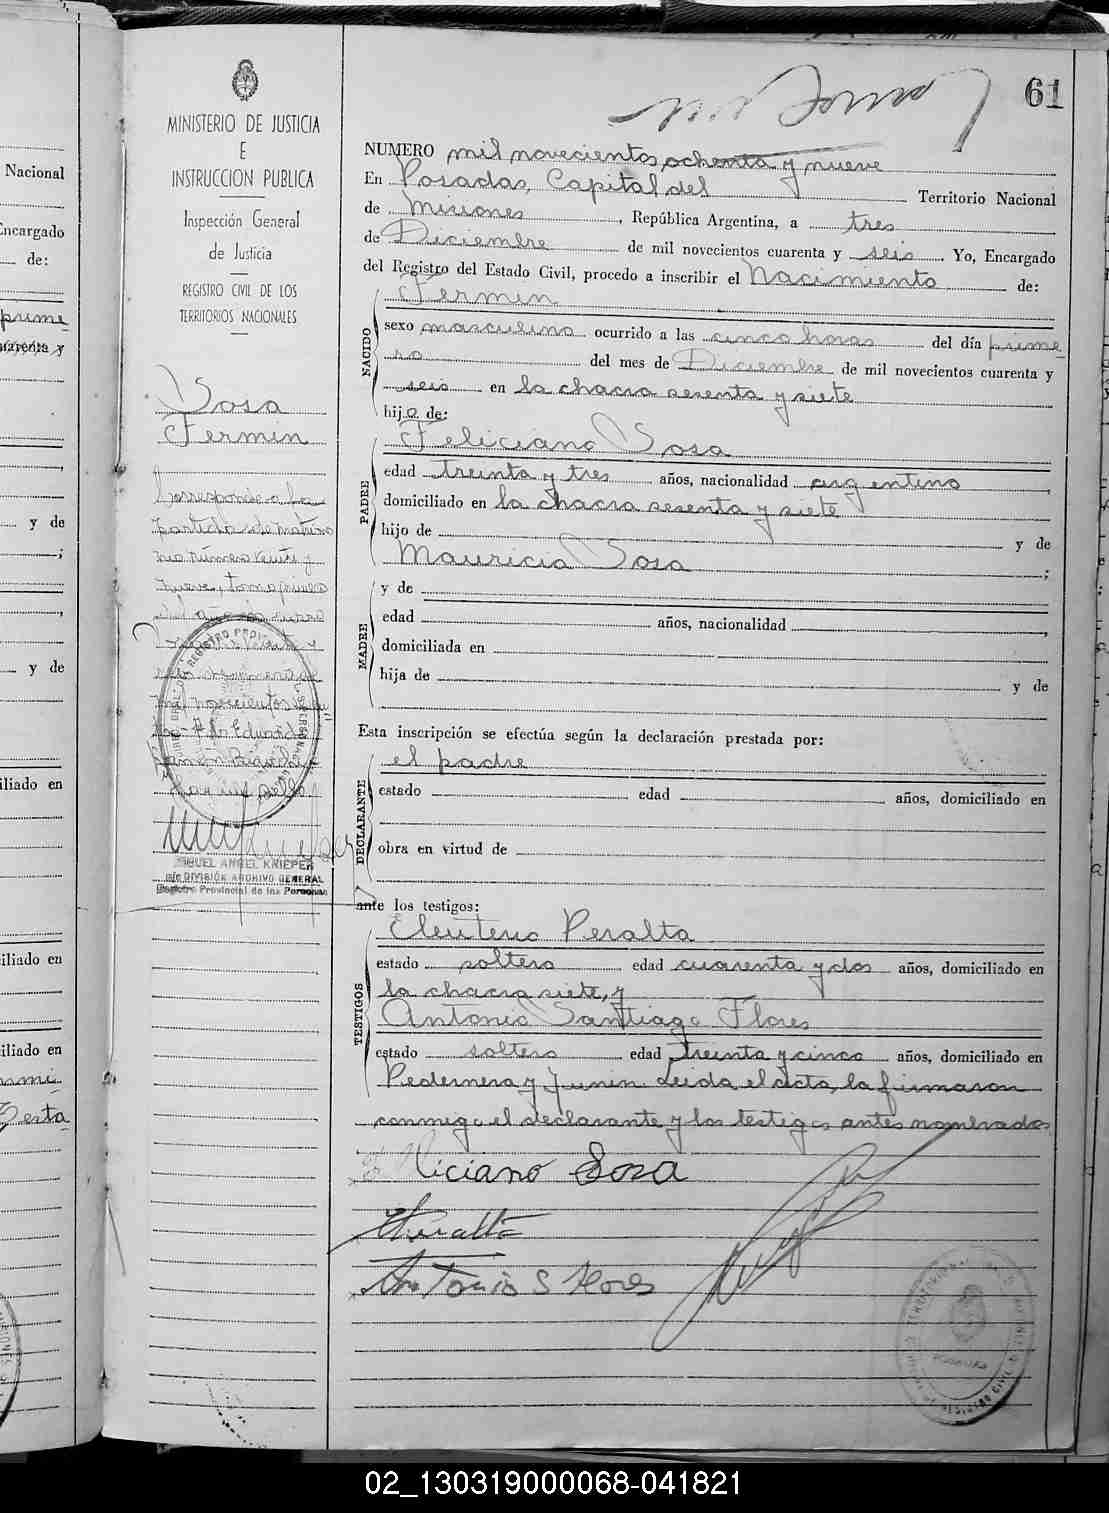 61
MINISTERIO DE JUSTICIA
E
INSTRUCCION PUBLICA
Inspección General
de Justicia
REGISTRO CIVIL DE LOS
TERRITORIOS NACIONALES
Sosa
Fermin
Corresponde a la
partida de matrimo
nio número veinti y
nueve, tomo primero
del año
MIGUEL ANGEL KRIEPER
DIVISIÓN ARCHIVO GENERAL
Registro Provincial de las Personas
NUMERO mil novecientos ochenta y nueve
En Posadas, Capital del Territorio Nacional
de Misiones, República Argentina, a tres
de Diciembre de mil novecientos cuarenta y seis. Yo, Encargado
del Registro del Estado Civil, procedo a inscribir el Nacimiento de:
NACIDO
Fermin
sexo masculino ocurrido a las cinco horas del día prime
ro del mes de Diciembre de mil novecientos cuarenta y
seis en la chacra sesenta y siete
hijo de:
PADRE
Feliciano Sosa
edad treinta y tres años, nacionalidad argentino,
domiciliado en la chacra sesenta y siete
hijo de y de
Mauricia Sosa;
MADRE
y de
edad años, nacionalidad,
domiciliada en
hija de y de
Esta inscripción se efectúa según la declaración prestada por:
DECLARANTE
el padre
estado edad años, domiciliado en
obra en virtud de
ante los testigos:
TESTIGOS
Eleuterio Peralta
estado soltero edad cuarenta y dos años, domiciliado en
la chacra siete, y
Antonio Santiago Flores
estado soltero edad treinta y cinco años, domiciliado en
Pedernera y Junin Leida el acta, la firmaron
conmigo el declarante y los testigos antes nombrados
Feliciano Sosa
EPeralta
Antonio S Flores
Nacional
Encargado
de:
prime
cuarenta y
y de
;
,
y de
iliado en
iliado en
iliado en
02_130319000068-041821